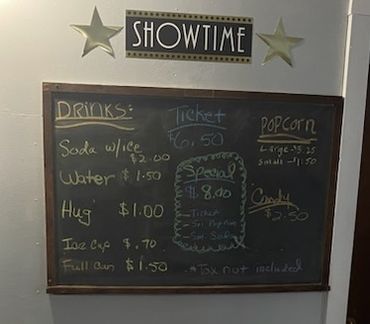 SHOWTIME
DRINKS:
Soda w/ice
$2.00
Water $1.50
Hug $1.00
Ice Cup $.70
Full Can $1.50
Ticket
$6.50
Special
$8.00
-Ticket
-Sm Popcorn
-Sm. Soda
POPCORN
Large-$3.25
Small-$1.50
Candy
$2.50
*Tax not included